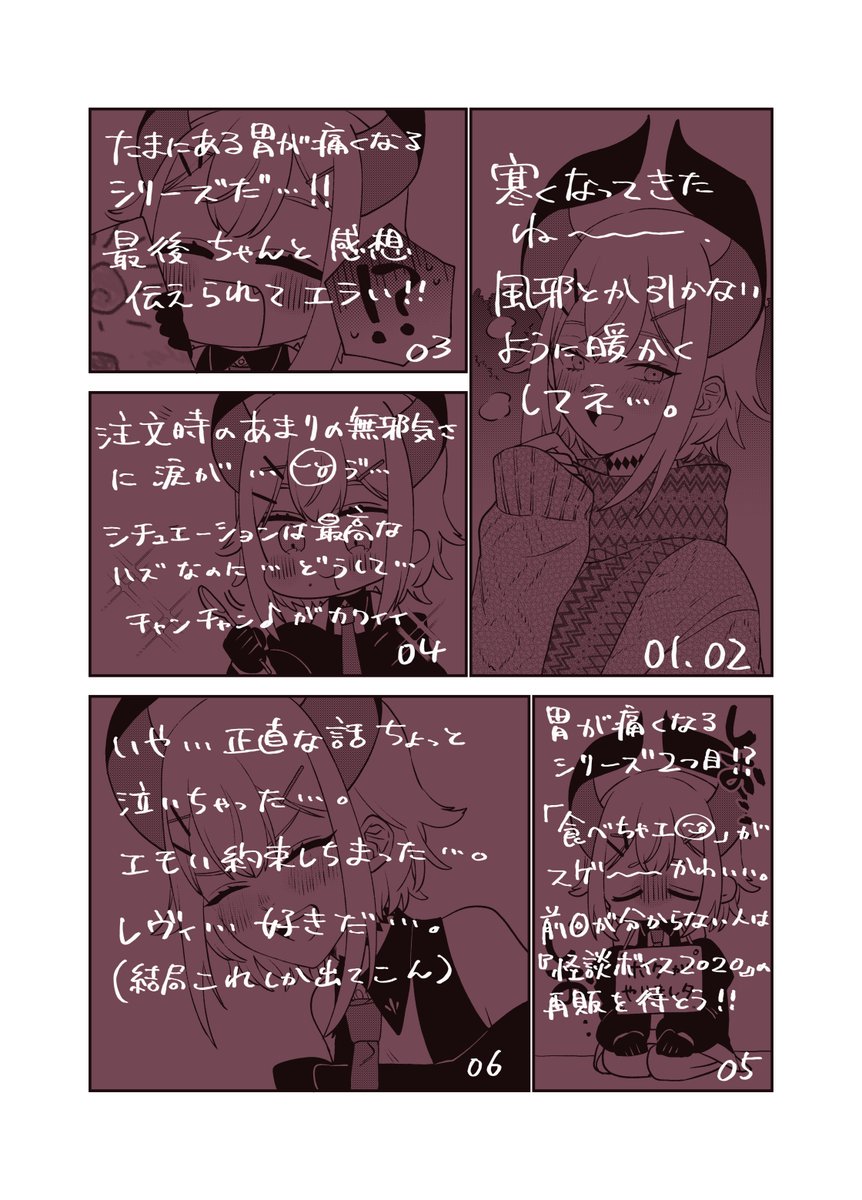 寒くなってきた
ね〜〜。
風邪とか引かない
ように暖かく
してネ…。
01.02
たまにある胃が痛くなる
シリーズだ…!!
最後ちゃんと感想
伝えられてエラい!!
!?
03
注文時のあまりの無邪気さ
に涙が…ジ…
シチュエーションは最高な
ハズなのに…どうして…
チャンチャン♪がカワイイ
04
胃が痛くなる
シリーズ2つ目!?
「食べちゃエ」が
スゲ〜〜かわいい。
前回が分からない人は
『怪談ボイス2020』の
再販を待とう!!
05
いや…正直な話ちょっと
泣いちゃった…。
エモい約束しちまった…。
レヴィ…好きだ…。
(結局これしか出てこん)
06